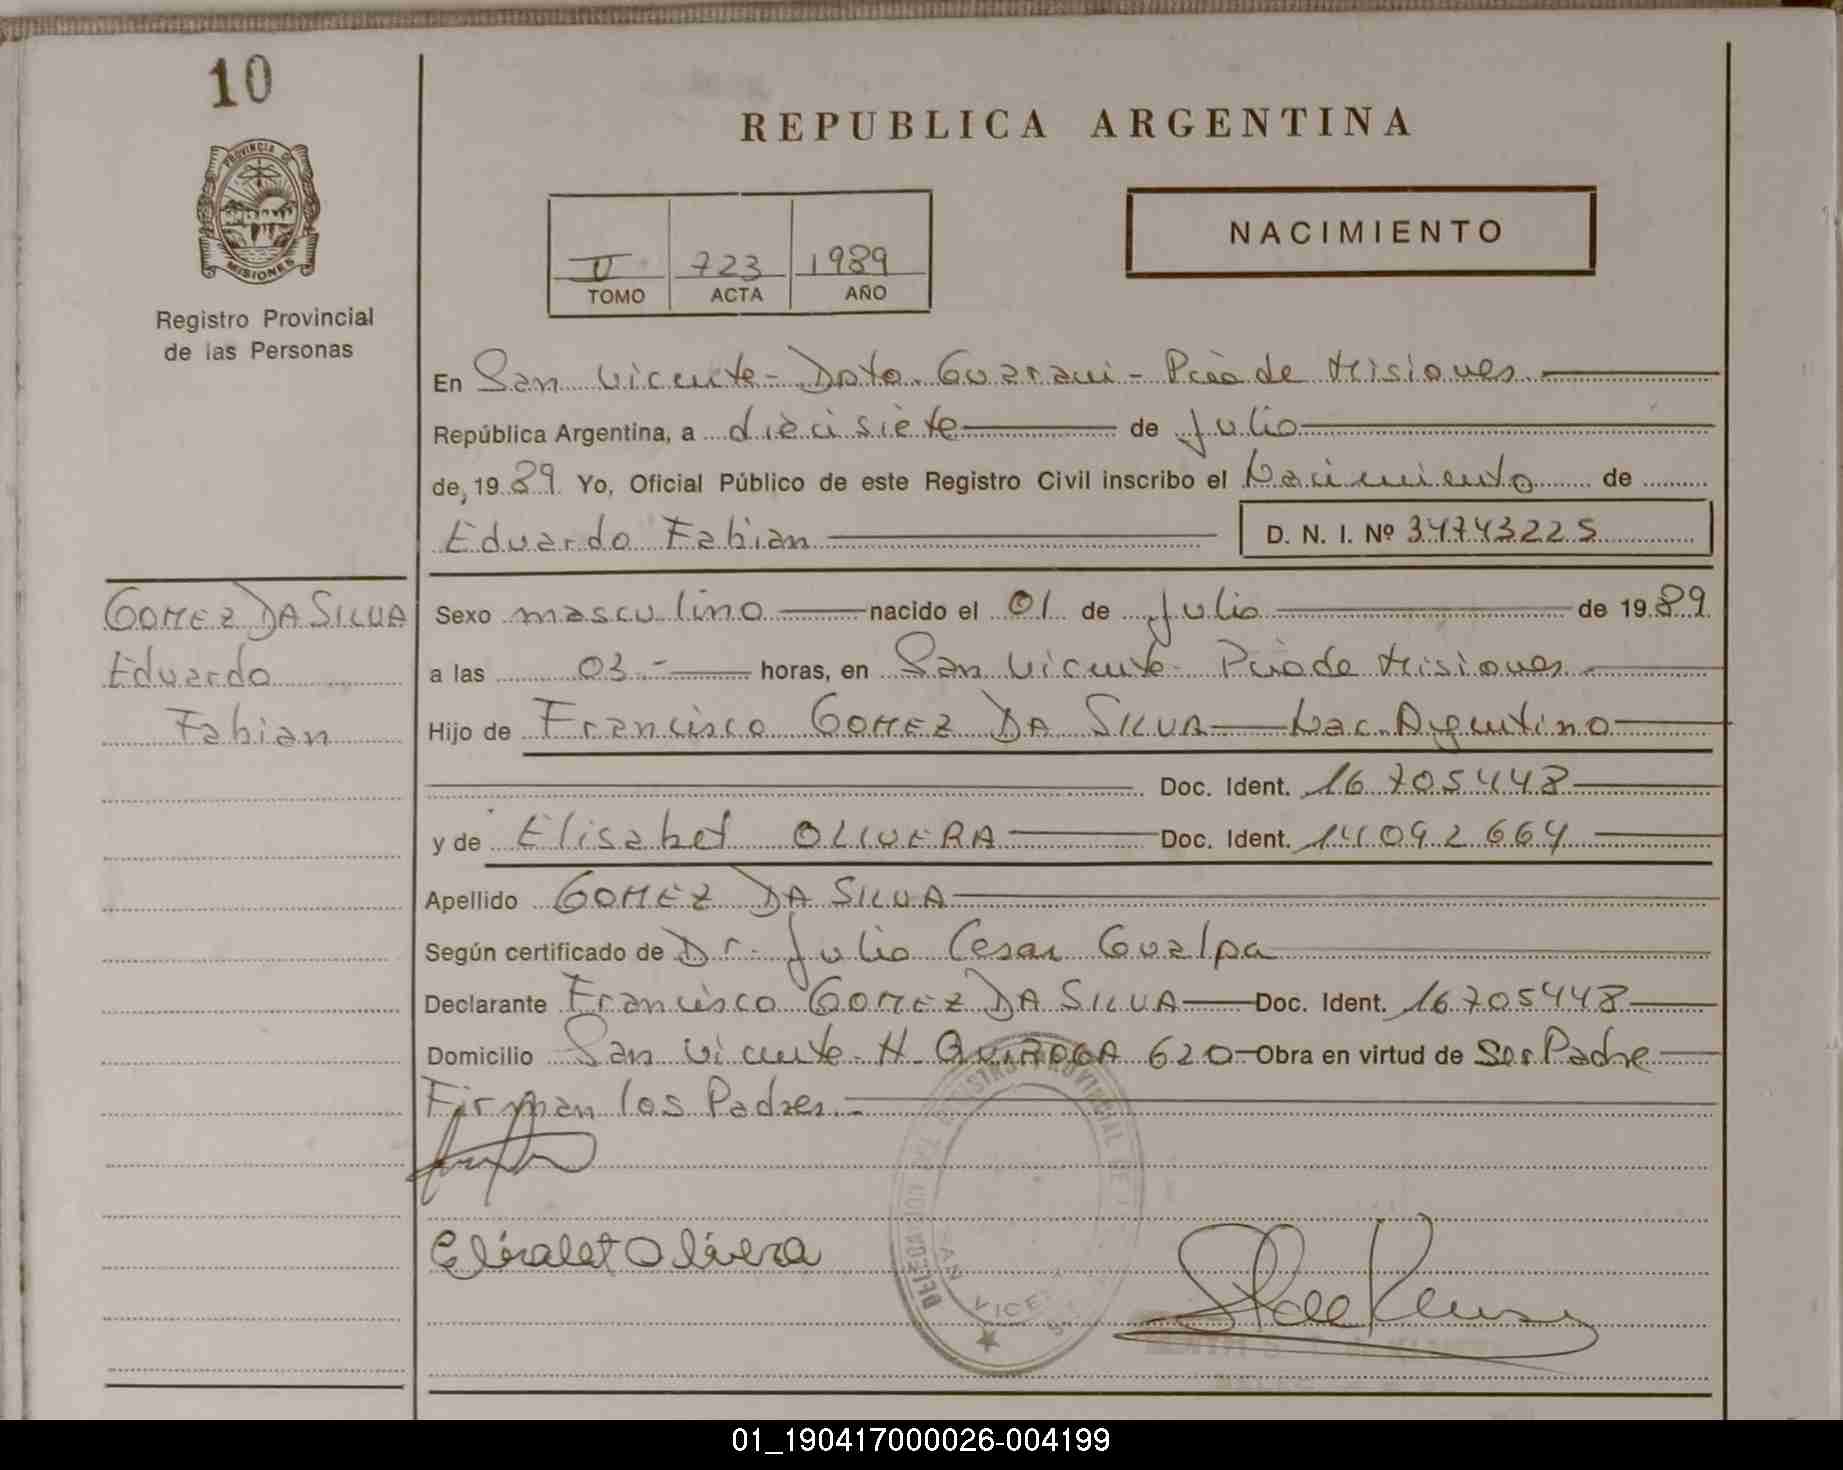 10
PROVINCIA DE
MISIONES
Registro Provincial
de las Personas
REPUBLICA ARGENTINA
NACIMIENTO
II 723 1989
TOMO ACTA AÑO
En San Vicente - Dpto. Guarani - Pcia de Misiones
República Argentina, a diecisiete de Julio
de, 1989 Yo, Oficial Público de este Registro Civil inscribo el Nacimiento de
Eduardo Fabian D. N. I. Nº 34743225
GOMEZ DA SILVA
Eduardo
Fabian
Sexo masculino nacido el 01 de Julio de 1989
a las 03.- horas, en San Vicente - Pcia de Misiones
Hijo de Francisco GOMEZ DA SILVA Nac. Argentino
Doc. Ident. 16.705448
y de Elisabet OLIVERA Doc. Ident. 14.092.664
Apellido GOMEZ DA SILVA
Según certificado de Dr. Julio Cesar Gualpa
Declarante Francisco GOMEZ DA SILVA Doc. Ident. 16.705448
Domicilio San Vicente - H. QUIROGA 620 Obra en virtud de Ser Padre
Firman los Padres.-
Elisabet Olivera
REGISTRO PROVINCIAL DE
SAN VICENTE
01_190417000026-004199